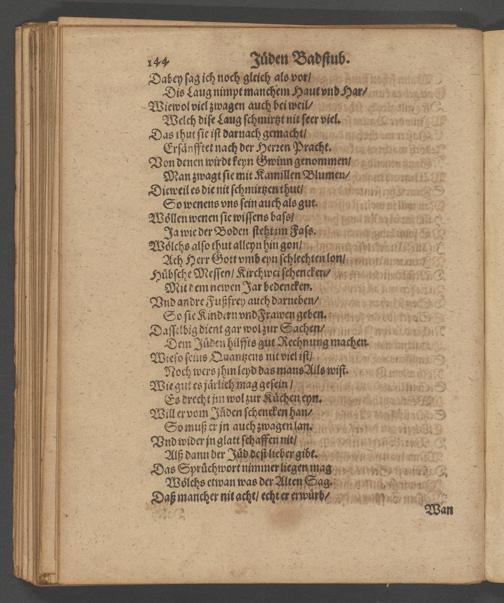 144 Jüden Badstub.
Dabey sag ich noch gleich als vor/
Die Laug nimpt manchem Haut vnd Har/
Wiewol viel zwagen auch bei weil/
Welch dise Laug schmirtzt nit seer viel.
Das thut sie ist darnach gemacht/
Ersänfftet nach der Herren Pracht.
Von denen wirdt keyn Gwinn genommen/
Man zwagt sie mit Kamillen Blumen/
Dieweil es die nit schmirtzen thut/
So wenens vns sein auch als gut.
Wöllen wenen sie wissens bass/
Ja wie der Boden steht im Fass.
Wölchs also thut alleyn hin gon/
Ach Herr Gott vmb eyn schlechten lon/
Hübsche Messen/ Kirchwei schencken/
Mit dem newen Jar bedencken.
Vnd andre Fußfrey auch darneben/
So sie Kindern vnd Frawen geben.
Dasselbig dient gar wol zur Sachen/
Dem Jüden hilffts gut Rechnung machen.
Wie so seins Quantzens nit viel ist/
Noch wers jhm leyd das mans Alls wist.
Wie gut es järlich mag gesein/
Es drecht jm wol zur Küchen eyn.
Will er vom Jüden schencken han/
So muß er jn auch zwagen lan.
Vnd wider jn glatt schaffen nit/
Alß dann der Jüd dest lieber gibt.
Das Sprüchwort nimmer liegen mag
Wölchs etwan was der Alten Sag.
Daß mancher nit acht/ echt er erwürb/
Wan